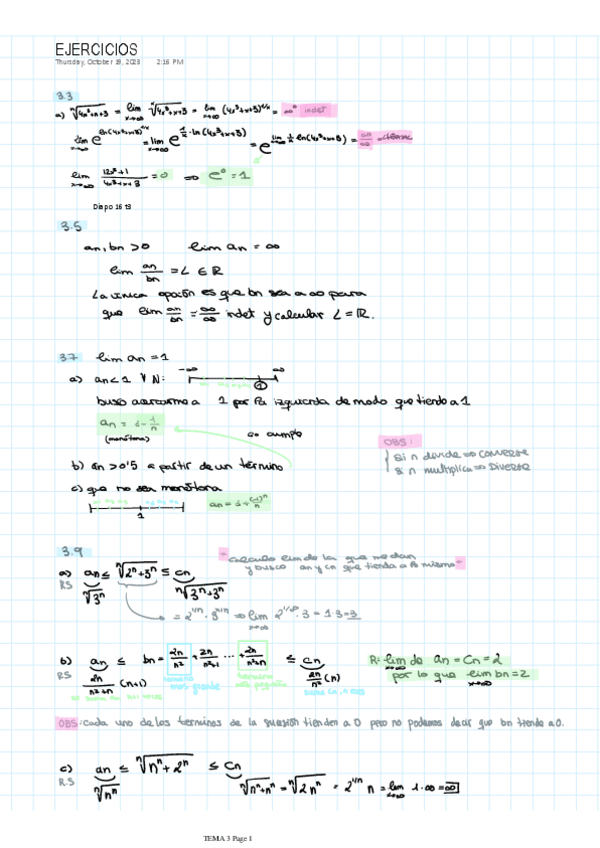 EJERCICIOS
Thursday, October 19, 2023 2:16 PM
3.3
a) ⁿ√(4n³+n+3) = lim x→∞ ˣ√(4x³+x+3) = lim x→∞ (4x³+x+3)^(1/x) = ∞⁰ indet
lim x→∞ e^(ln(4x³+x+3)^(1/x)) = lim x→∞ e^(1/x · ln(4x³+x+3)) = e^(lim x→∞ 1/x ln(4x³+x+3)) = ∞/∞
lim x→∞ (12x²+1)/(4x³+x+3) = 0 ⇒ e⁰ = 1
Diapo 16 t3
3.5
an, bn > 0 lim an = ∞
lim an/bn = L ∈ ℝ
La única opción es que bn sea a ∞ para
que lim an/bn = ∞/∞ indet y calcular L = ℝ.
3.7 lim an = 1
a) an < 1 ∀ N: -∞ ∞
1
busco acercarme a 1 por la izquierda de modo que tienda a 1
an = 1 - 1/n
(monótona)
cumple
OBS:
si n divide ⇒ converge
si n multiplica ⇒ Diverge
b) an > 0'5 a partir de un término
c) que no sea monótona
an = 1 + (-1)ⁿ/n
1
3.9
- calculo lim de la que me dan
y busco an y cn que tienda a lo mismo -
a) an ≤ ⁿ√(2ⁿ+3ⁿ) ≤ cn
RS ⁿ√3ⁿ ⁿ√(3ⁿ+3ⁿ)
= 2^(1/n) · 3^(n/n) ⇒ lim x→∞ 2^(1/∞) · 3 = 1·3 = 3
b) an ≤ bn = 2n/n² + 2n/(n²+1) + ... + 2n/(n²+n) ≤ cn
R: lim x→∞ de an = cn = 2
RS 2n/(n²+n) (n+1)
término más grande
término más pequeño
(n)
por lo que lim x→∞ bn = 2
OBS: cada uno de los términos de la sucesión tienden a 0 pero no podemos decir que bn tiende a 0.
c) an ≤ ⁿ√(nⁿ+2ⁿ) ≤ cn
R.S ⁿ√nⁿ ⁿ√(nⁿ+nⁿ) = ⁿ√(2nⁿ) = 2^(1/n) n = lim x→∞ 1·∞ = ∞
TEMA 3 Page 1